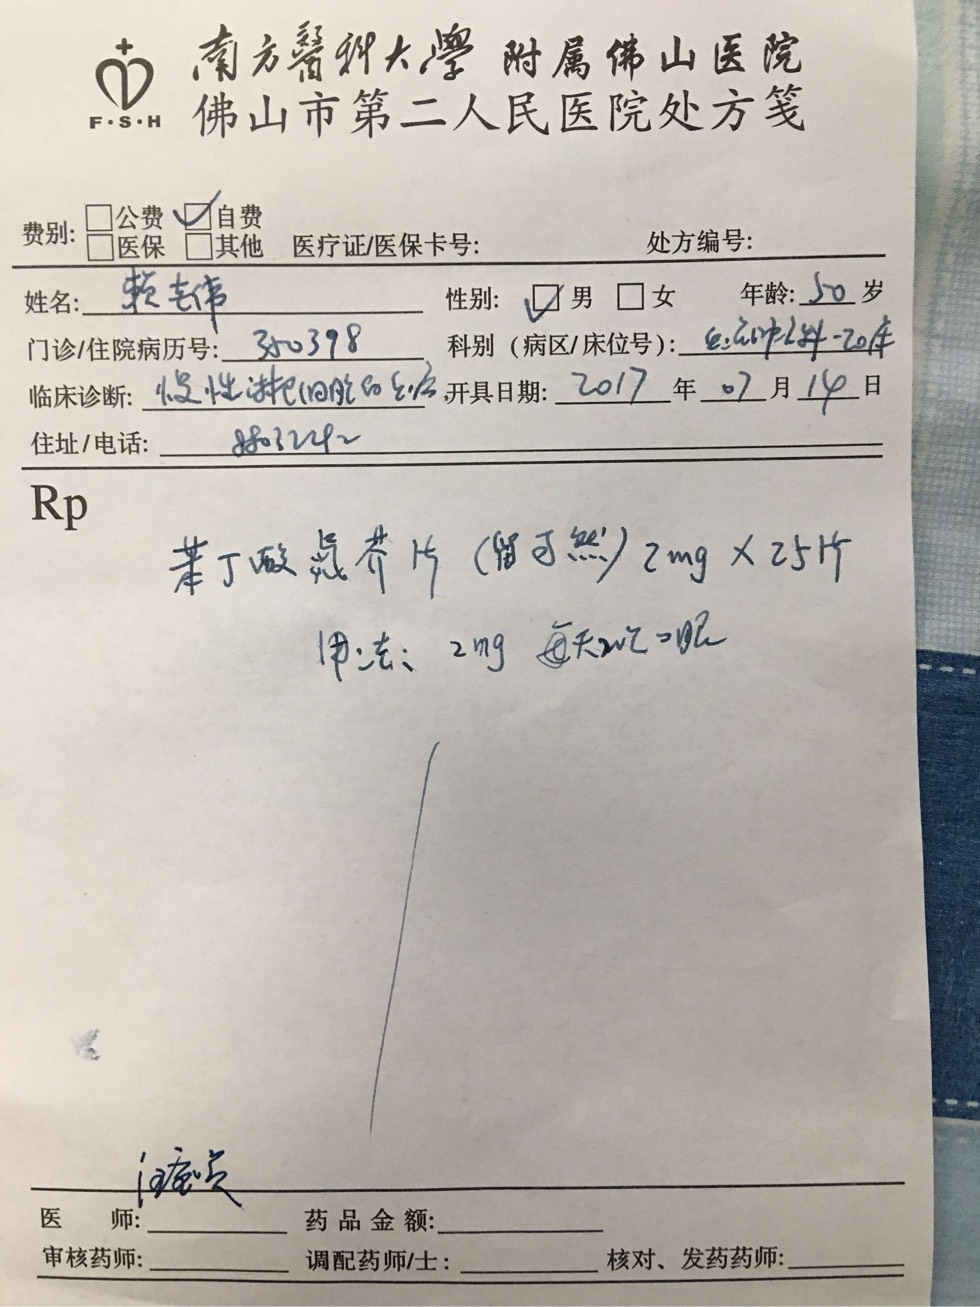 南方醫科大學 附属佛山医院
F·S·H
佛山市第二人民医院处方笺
费别: 公费 自费
医保 其他 医疗证/医保卡号: 处方编号:
姓名: 赖志伟 性别: 男 女 年龄: 50 岁
门诊/住院病历号: 350398 科别（病区/床位号）: 血液肿瘤科-20床
临床诊断: 慢性淋巴细胞白血病 开具日期: 2017 年 07 月 14 日
住址/电话:
Rp
苯丁酸氮芥片 (留可然) 2mg×25片
用法: 2mg 每天 口服
医 师: 药品金额:
审核药师: 调配药师/士: 核对、发药药师: